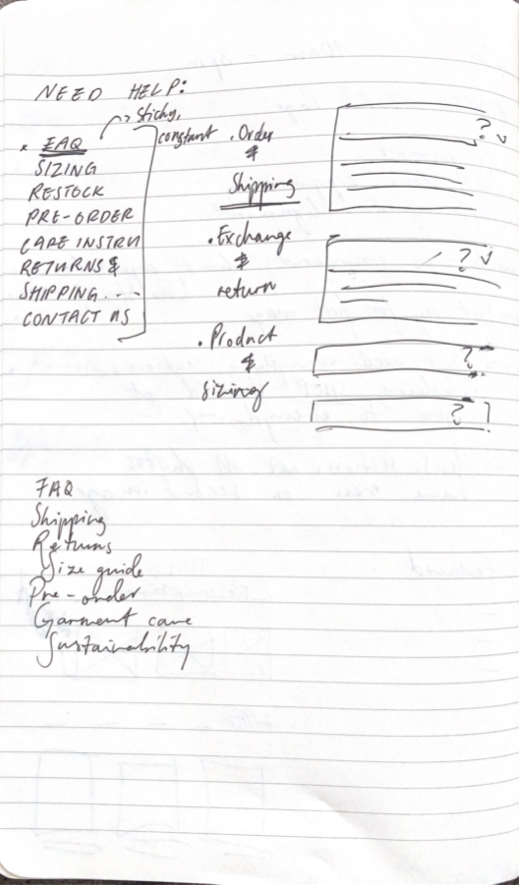 NEED HELP:
sticky,
constant
FAQ
SIZING
RESTOCK
PRE-ORDER
CARE INSTRU
RETURNS &
SHIPPING ....
CONTACT US
. Order
&
Shipping
. Exchange
&
return
. Product
&
Sizing
?
?
?
?
FAQ
Shipping
Returns
Size guide
Pre-order
Garment care
Sustainability